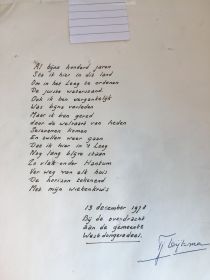 "Al bijna honderd jaren
Sta ik hier in dit land
Om in het Leeg te ordenen
De juiste waterstand.
Ook ik ben vergankelijk
Was bijna verleden
Maar ik ben gered
door de welvaart van heden
Seizoenen komen
En zullen weer gaan
Doe ik hier in 't Leeg
Nog lang blijve staan
Zo vlak onder Hantum
Ver weg van elk huis
De horizon tekenend
Met mijn wiekenkruis
13 december 1974
Bij de overdracht
aan de gemeente
Westdongeradeel.